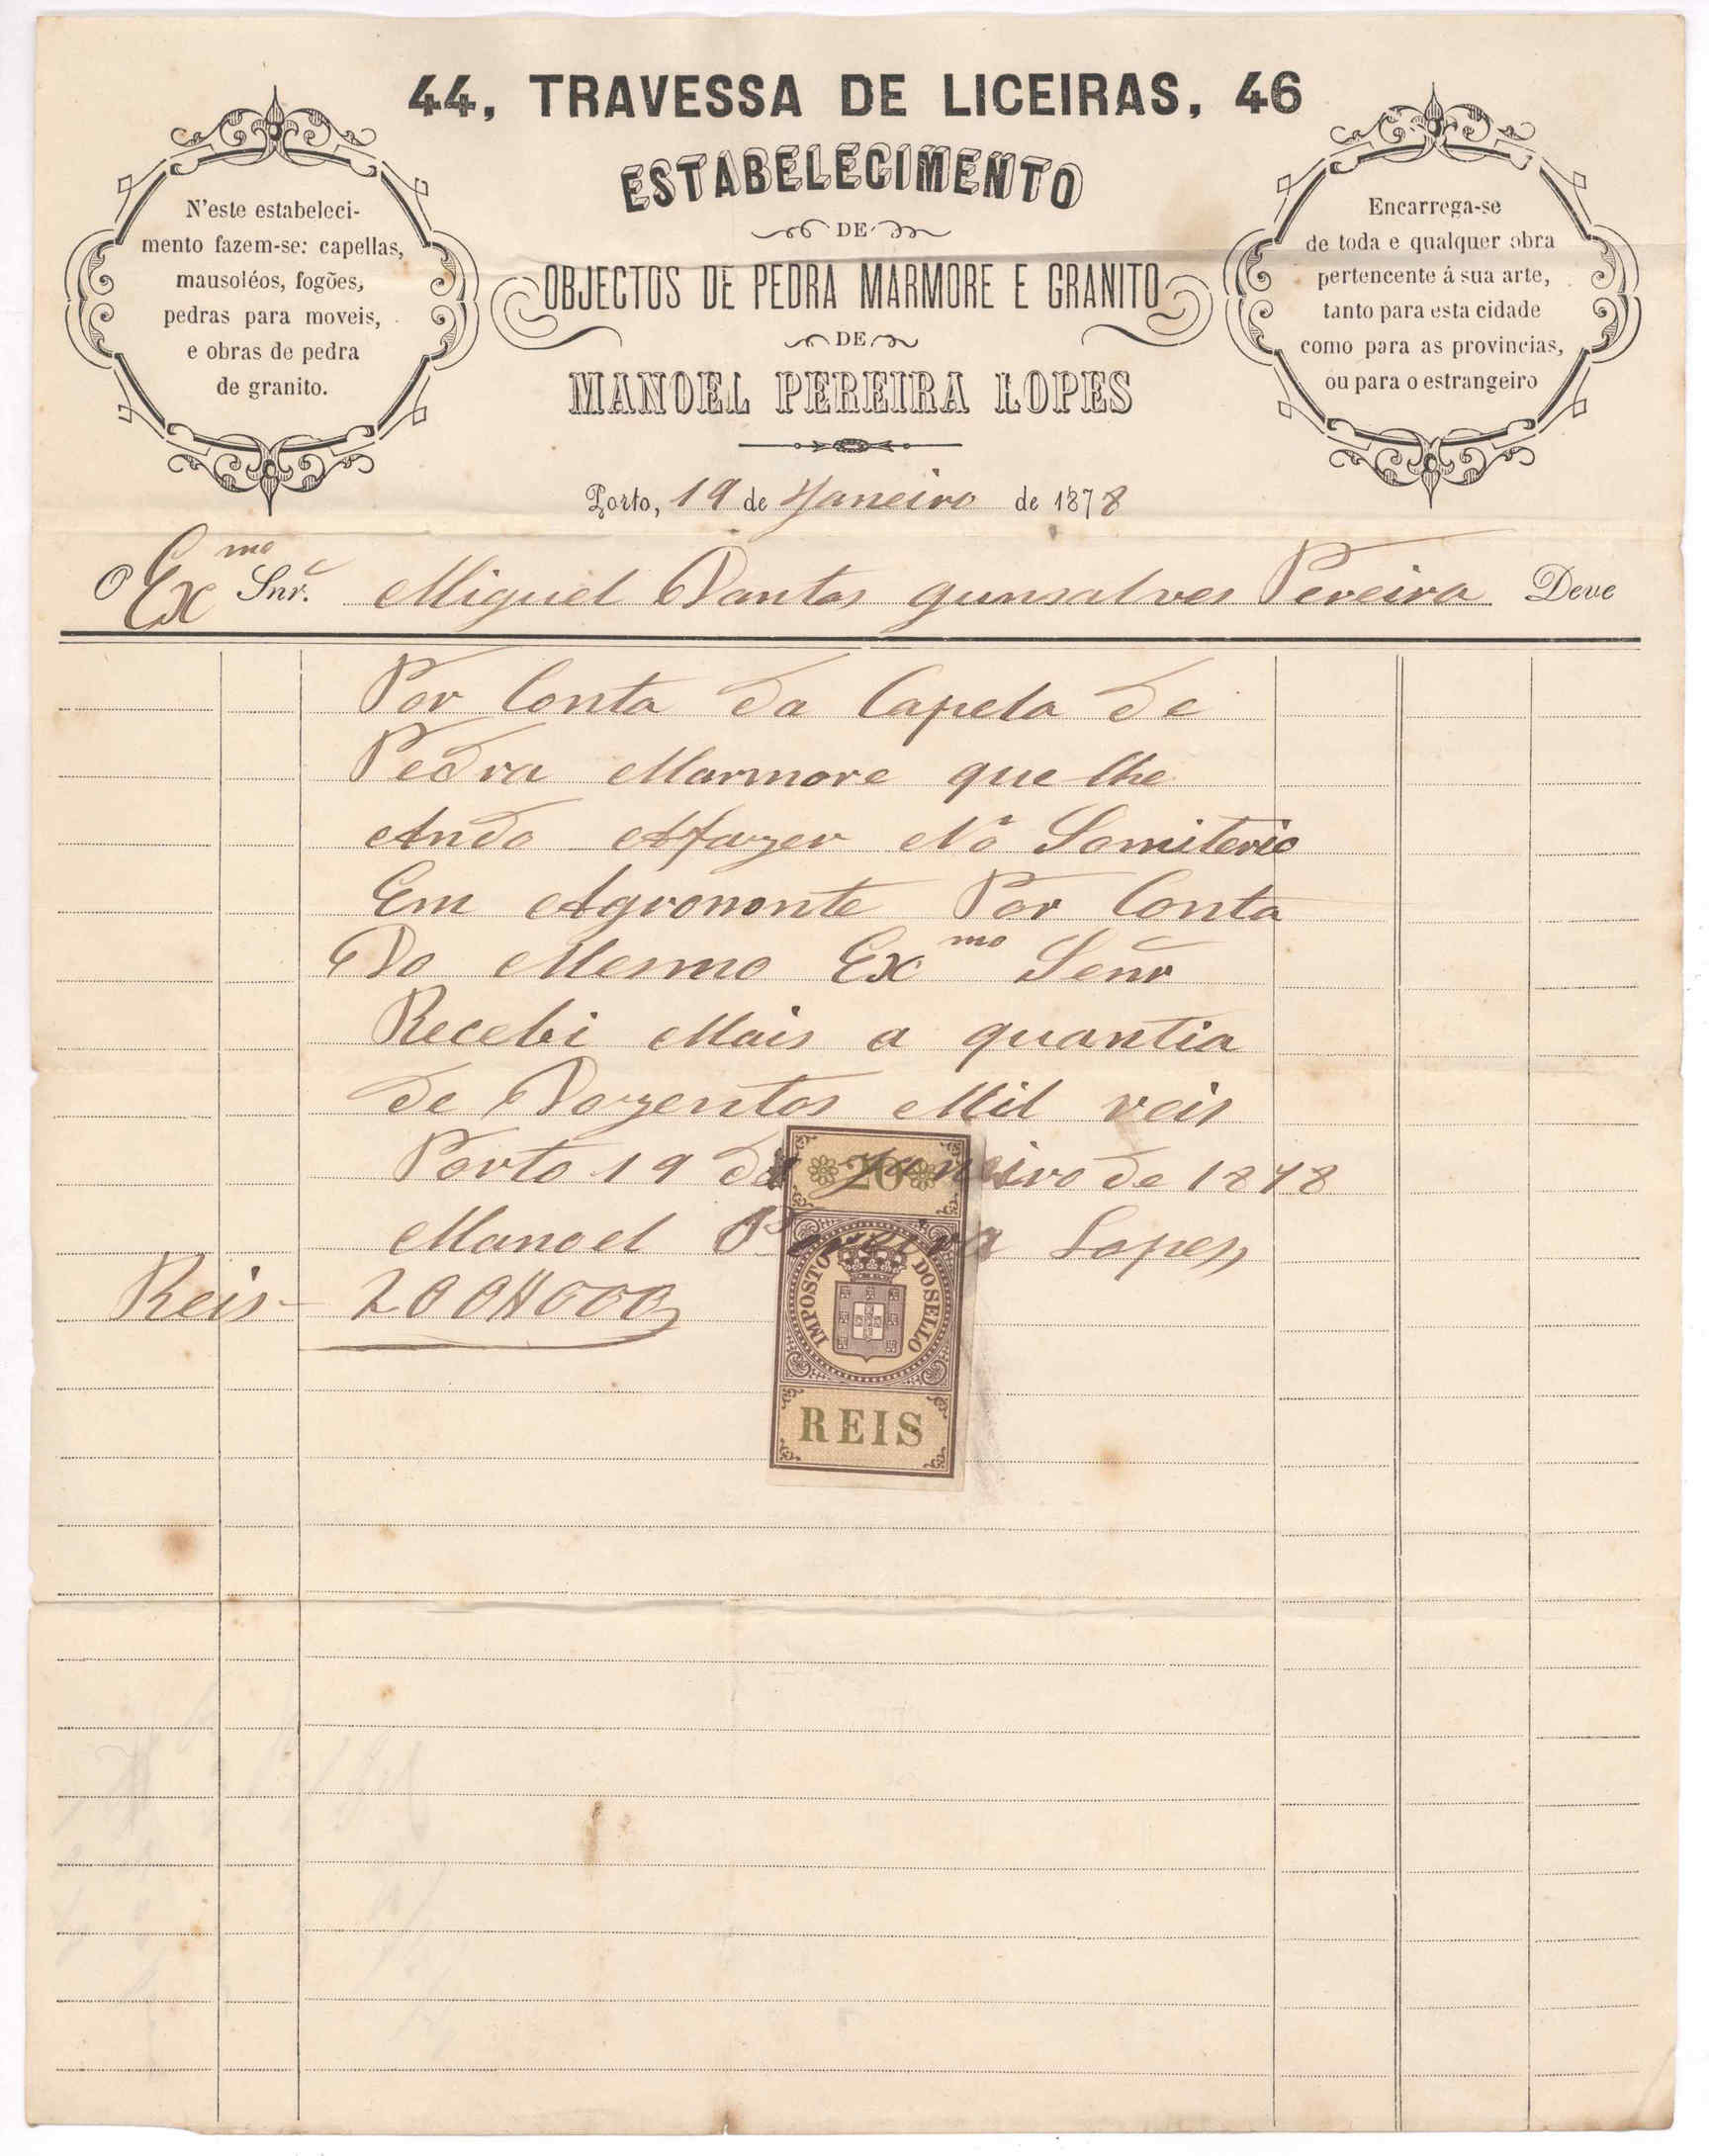 44, TRAVESSA DE LICEIRAS, 46
ESTABELECIMENTO
DE
OBJECTOS DE PEDRA MARMORE E GRANITO
DE
MANOEL PEREIRA LOPES
N'este estabeleci-
mento fazem-se: capellas,
mausoléos, fogões,
pedras para moveis,
e obras de pedra
de granito.
Encarrega-se
de toda e qualquer obra
pertencente á sua arte,
tanto para esta cidade
como para as provincias,
ou para o estrangeiro
Porto, 19 de Janeiro de 1878
O Exmo Snr. Miguel Dantas gunsalves Pereira Deve
Por Conta da Capela de
Pedra Marmore que lhe
Ando Afazer No Semiterio
Em Agromonte Por Conta
Do Mesmo Exmo Señr
Recebi Mais a quantia
de Dozentos Mil reis
Porto 19 de Janeiro de 1878
Manoel Pereira Lopes
Reis - 200$000
20
IMPOSTO DO SELLO
REIS